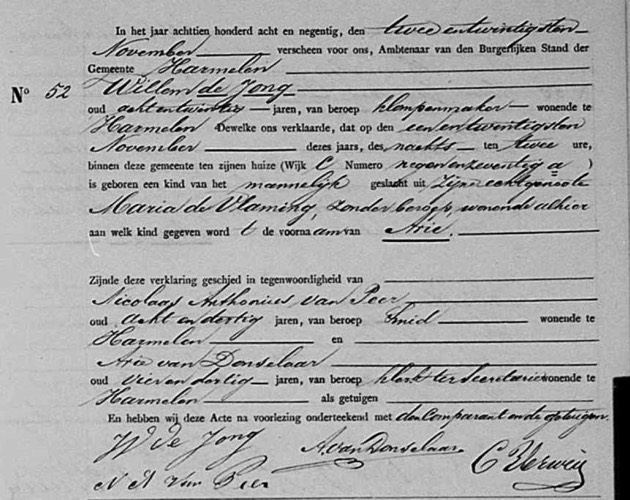 In het jaar achttien honderd acht en negentig, den twee entwintigsten
November verscheen voor ons, Ambtenaar van den Burgerlijken Stand der
Gemeente Harmelen
Nº 52 Willem de Jong
oud achtentwintig jaren, van beroep klompenmaker wonende te
Harmelen Dewelke ons verklaarde, dat op den eenentwintigsten
November dezes jaars, des nachts ten twee ure,
binnen deze gemeente ten zijnen huize (Wijk C Numero negenenzeventig a )
is geboren een kind van het mannelijk geslacht uit zijne echtgenoote
Maria de Vlaming, zonder beroep, wonende alhier
aan welk kind gegeven word t de voorna am van Arie.
Zijnde deze verklaring geschied in tegenwoordigheid van
Nicolaas Anthonius van Peer
oud acht en dertig jaren, van beroep smid wonende te
Harmelen en
Arie van Donselaar
oud vierendertig jaren, van beroep klerk ter secretarie wonende te
Harmelen als getuigen
En hebben wij deze Acte na voorlezing onderteekend met den Comparant en de getuigen.
W de Jong A. van Donselaar C Verweij
N A Van Peer